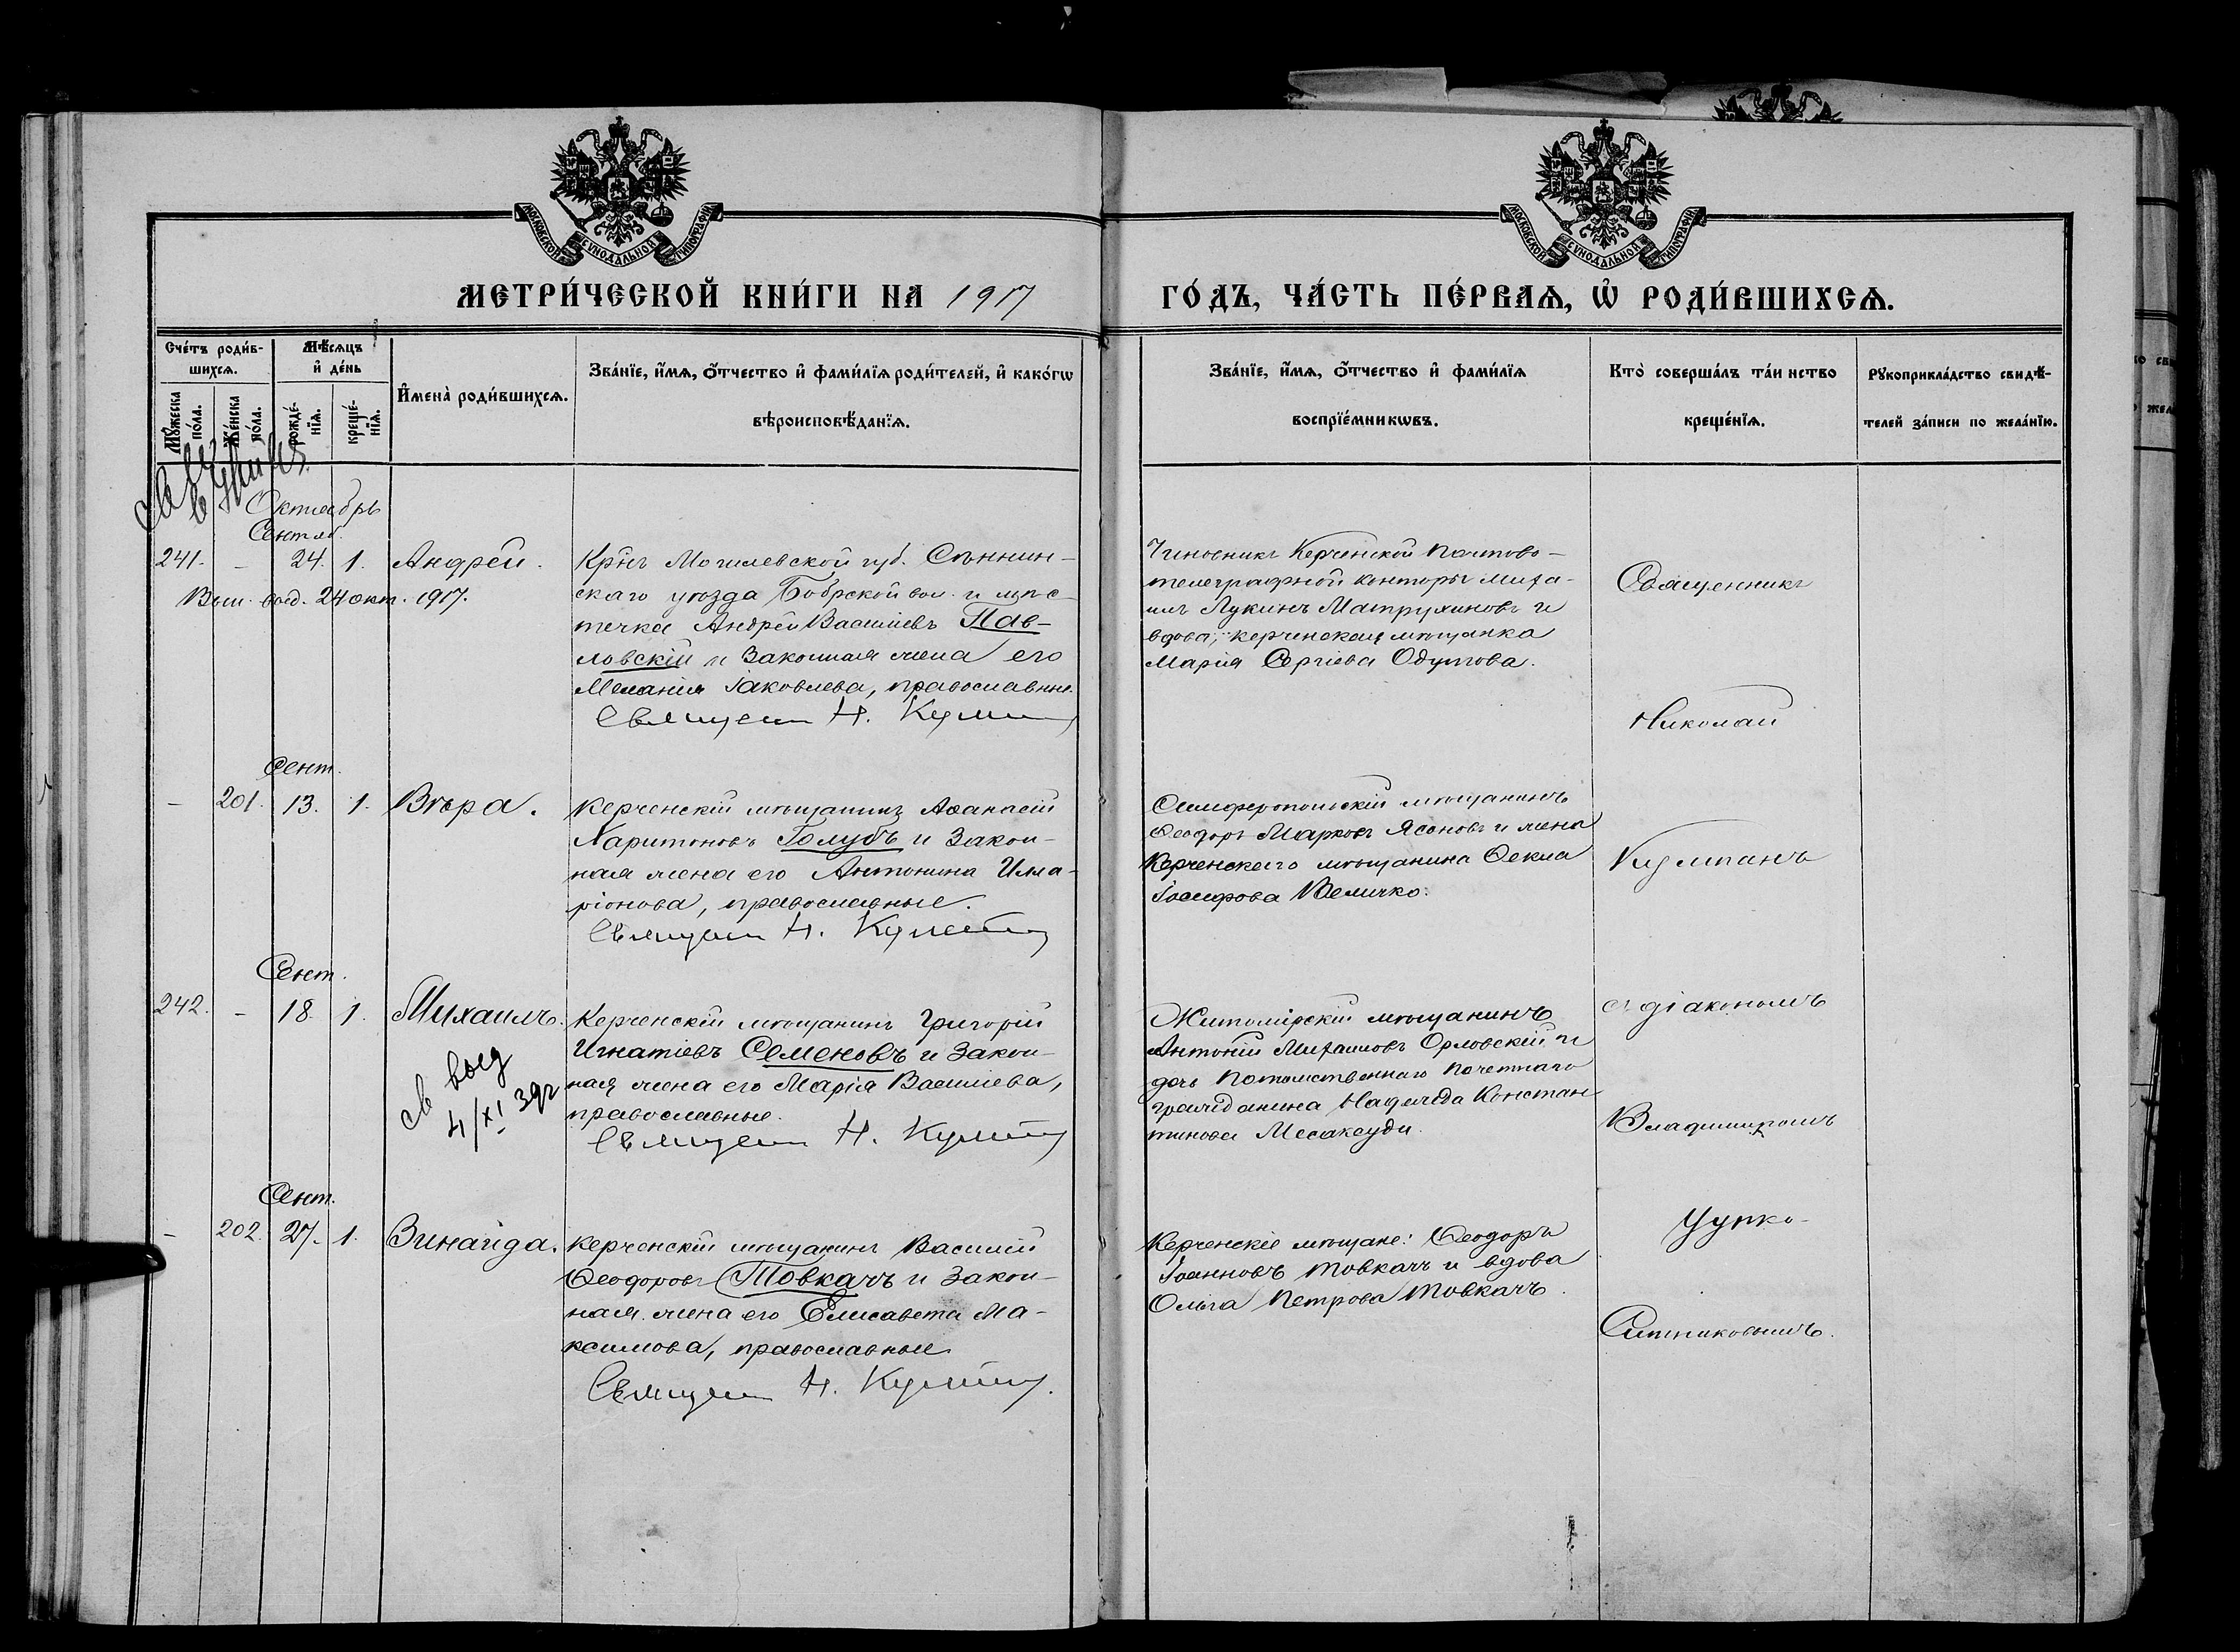 МОСКОВСКОЙ СѴНОДАЛЬНОЙ ТИПОГРАФІИ
МОСКОВСКОЙ СѴНОДАЛЬНОЙ ТИПОГРАФІИ
МЕТРИ́ЧЕСКОЙ КНИ́ГИ НА 1917
ГО́ДЪ, ЧА́СТЬ ПЕ́РВАЯ, Ѡ҆ РОДИ́ВШИХСЯ.
Сче́тъ роди́в-
шихся.
Мѣ́сяцъ
и҆ де́нь
Мꙋ́жеска
по́ла.
Же́нска
по́ла.
рожде́-
нїя.
креще́-
нїя.
И҆мена̀ роди́вшихся.
Зва́нїе, и҆́мя, ѻ҆́тчество и҆ фами́лїя роди́телей, и҆ како́гѡ
вѣроисповѣ́данїя.
Зва́нїе, и҆́мя, ѻ҆́тчество и҆ фами́лїя
воспрїе́мникѡвъ.
Кто̀ соверша́лъ та́инство
креще́нїя.
Рꙋкоприкла́дство свидѣ́-
телей за́писи по жела́нїю.
Октябрь
Сентяб.
241. - 24. 1. Андрей.
Вып. выд. 24 окт. 1917.
Кр̃нъ Могилевской губ. Сѣннин-
скаго уѣзда Бобрской вол. и мѣс-
течка Андрей Василіевъ Пав-
ловскій и законная жена его
Меланія Іаковлева, православные.
Священ Н. Култ
Чиновникъ Керченской почтово-
телеграфной конторы Миха-
илъ Лукинъ Матрухиновъ и
вдова, керченская мѣщанка
Марія Сергіева Одутова.
Священникъ
Николай
Култанъ
съ діакономъ
Владимиромъ
Цупко-
Ситниковымъ.
Сент.
- 201. 13. 1. Вѣра.
Керченскій мѣщанинъ Аѳанасій
Харитоновъ Голубъ и закон-
ная жена его Антонина Илла-
ріонова, православные.
Священ Н. Култ
Симферопольскій мѣщанинъ
Ѳеодоръ Марковъ Ясоновъ и жена
Керченскаго мѣщанина Ѳекла
Іосифова Величко.
Сент.
242. - 18. 1. Михаилъ.
св выд
4/XI 39г
Керченскій мѣщанинъ Григорій
Игнатіевъ Семеновъ и закон-
ная жена его Марія Василіева,
православные.
Священ Н. Култ
Житомірскій мѣщанинъ
Антоній Михаиловъ Орловскій и
дочь потомственнаго почетнаго
гражданина Надежда Констан-
тинова Месаксуди.
Сент.
- 202. 27. 1. Зинаида.
Керченскій мѣщанинъ Василій
Ѳеодоровъ Товкачъ и закон-
ная жена его Елисавета Ма-
ксимова, православные
Священ Н. Култ.
Керченскіе мѣщане: Ѳеодоръ
Іоанновъ Товкачъ и вдова
Ольга Петрова Товкачъ.